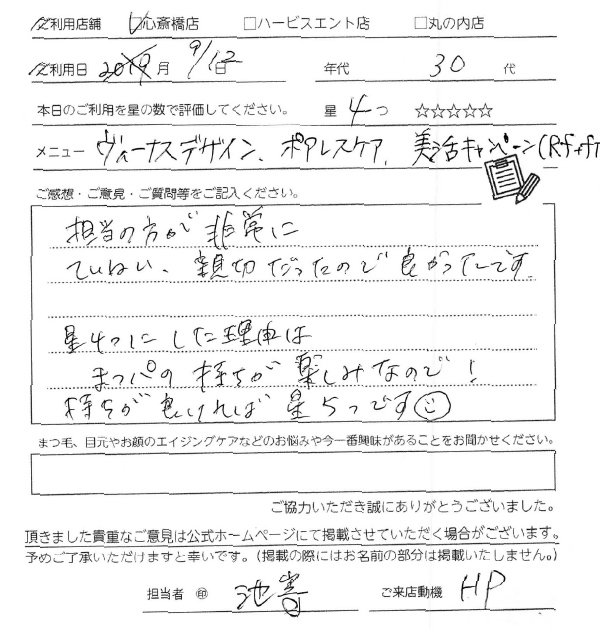 ご利用店舗 ☑心斎橋店 □ハービスエント店 □丸の内店
ご利用日 2019 月 9/12 日 年代 30 代
本日のご利用を星の数で評価してください。 星 4つ ☆☆☆☆☆
メニュー ヴィーナスデザイン、ポアレスケア、美活キャンペーン
ご感想・ご意見・ご質問等をご記入ください。
担当の方が非常に
ていねい、親切だったので良かったです
星4つにした理由は
まつパの持ちが楽しみなので!
持ちが良ければ星5つです
まつ毛、目元やお顔のエイジングケアなどのお悩みや今一番興味があることをお聞かせください。
ご協力いただき誠にありがとうございました。
頂きました貴重なご意見は公式ホームページにて掲載させていただく場合がございます。
予めご了承いただけますと幸いです。(掲載の際にはお名前の部分は掲載いたしません。)
担当者 ㊞ 池 ご来店動機 HP